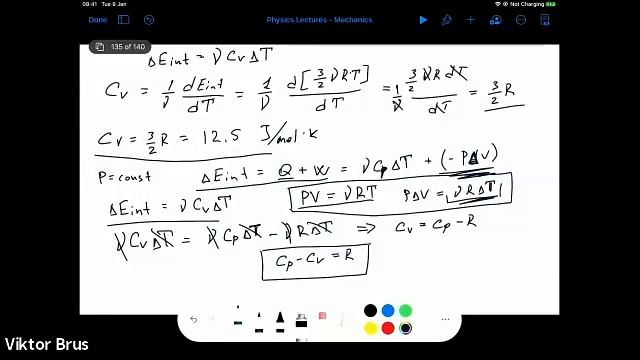 09:41 Tue 9 Jan
Not Charging
Done
Physics Lectures - Mechanics
135 of 140
ΔEint = ν Cv ΔT
Cv = 1/ν dEint/dT = 1/ν d[3/2 ν R T]/dT = 1/ν 3/2 ν R dT/dT = 3/2 R
Cv = 3/2 R = 12.5 J/mol·K
P = const
ΔEint = Q + W = ν Cp ΔT + (- P ΔV)
PV = ν R T PΔV = ν R ΔT
ΔEint = ν Cv ΔT
ν Cv ΔT = ν Cp ΔT - ν R ΔT ⇒ Cv = Cp - R
Cp - Cv = R
Viktor Brus